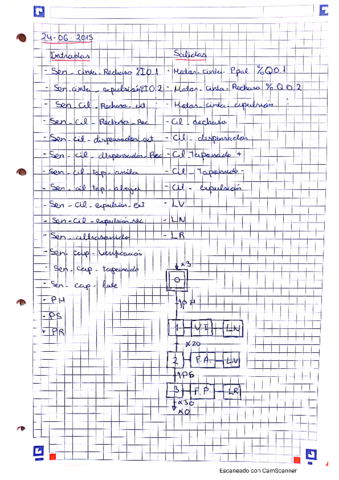 24-06-2015
Entradas
Salidas
- Sen-cinta-Rechazo %I0.1
- Motor-cinta-Ppal %Q0.1
- Sen-cinta-expulsión %I0.2
- Motor-cinta-Rechazo %Q0.2
- Sen-Cil-Rechazo-ext
- Motor-cinta-expulsión
- Sen-Cil-Rechazo-Rec
- Cil-rechazo
- Sen-cil-dispensador-ext
- Cil-dispensador
- Sen-cil-dispensador-Rec
- Cil-Taponado +
- Sen-cil-tap-arriba
- Cil-Taponado -
- Sen-cil-tap-abajo
- Cil-expulsión
- Sen-Cil-expulsión-ext
- LV
- Sen-Cil-expulsión-rec
- LN
- Sen-ultrasonido
- LR
- Sen-cap-Verificación
- Sen-cap-taponado
- Sen-cap-
- PM
- PS
- PR
x3
0
PM
1
V.I
LN
x20
2
F.A.
LV
PS
3
F.P
LR
x30
x0
Escaneado con CamScanner